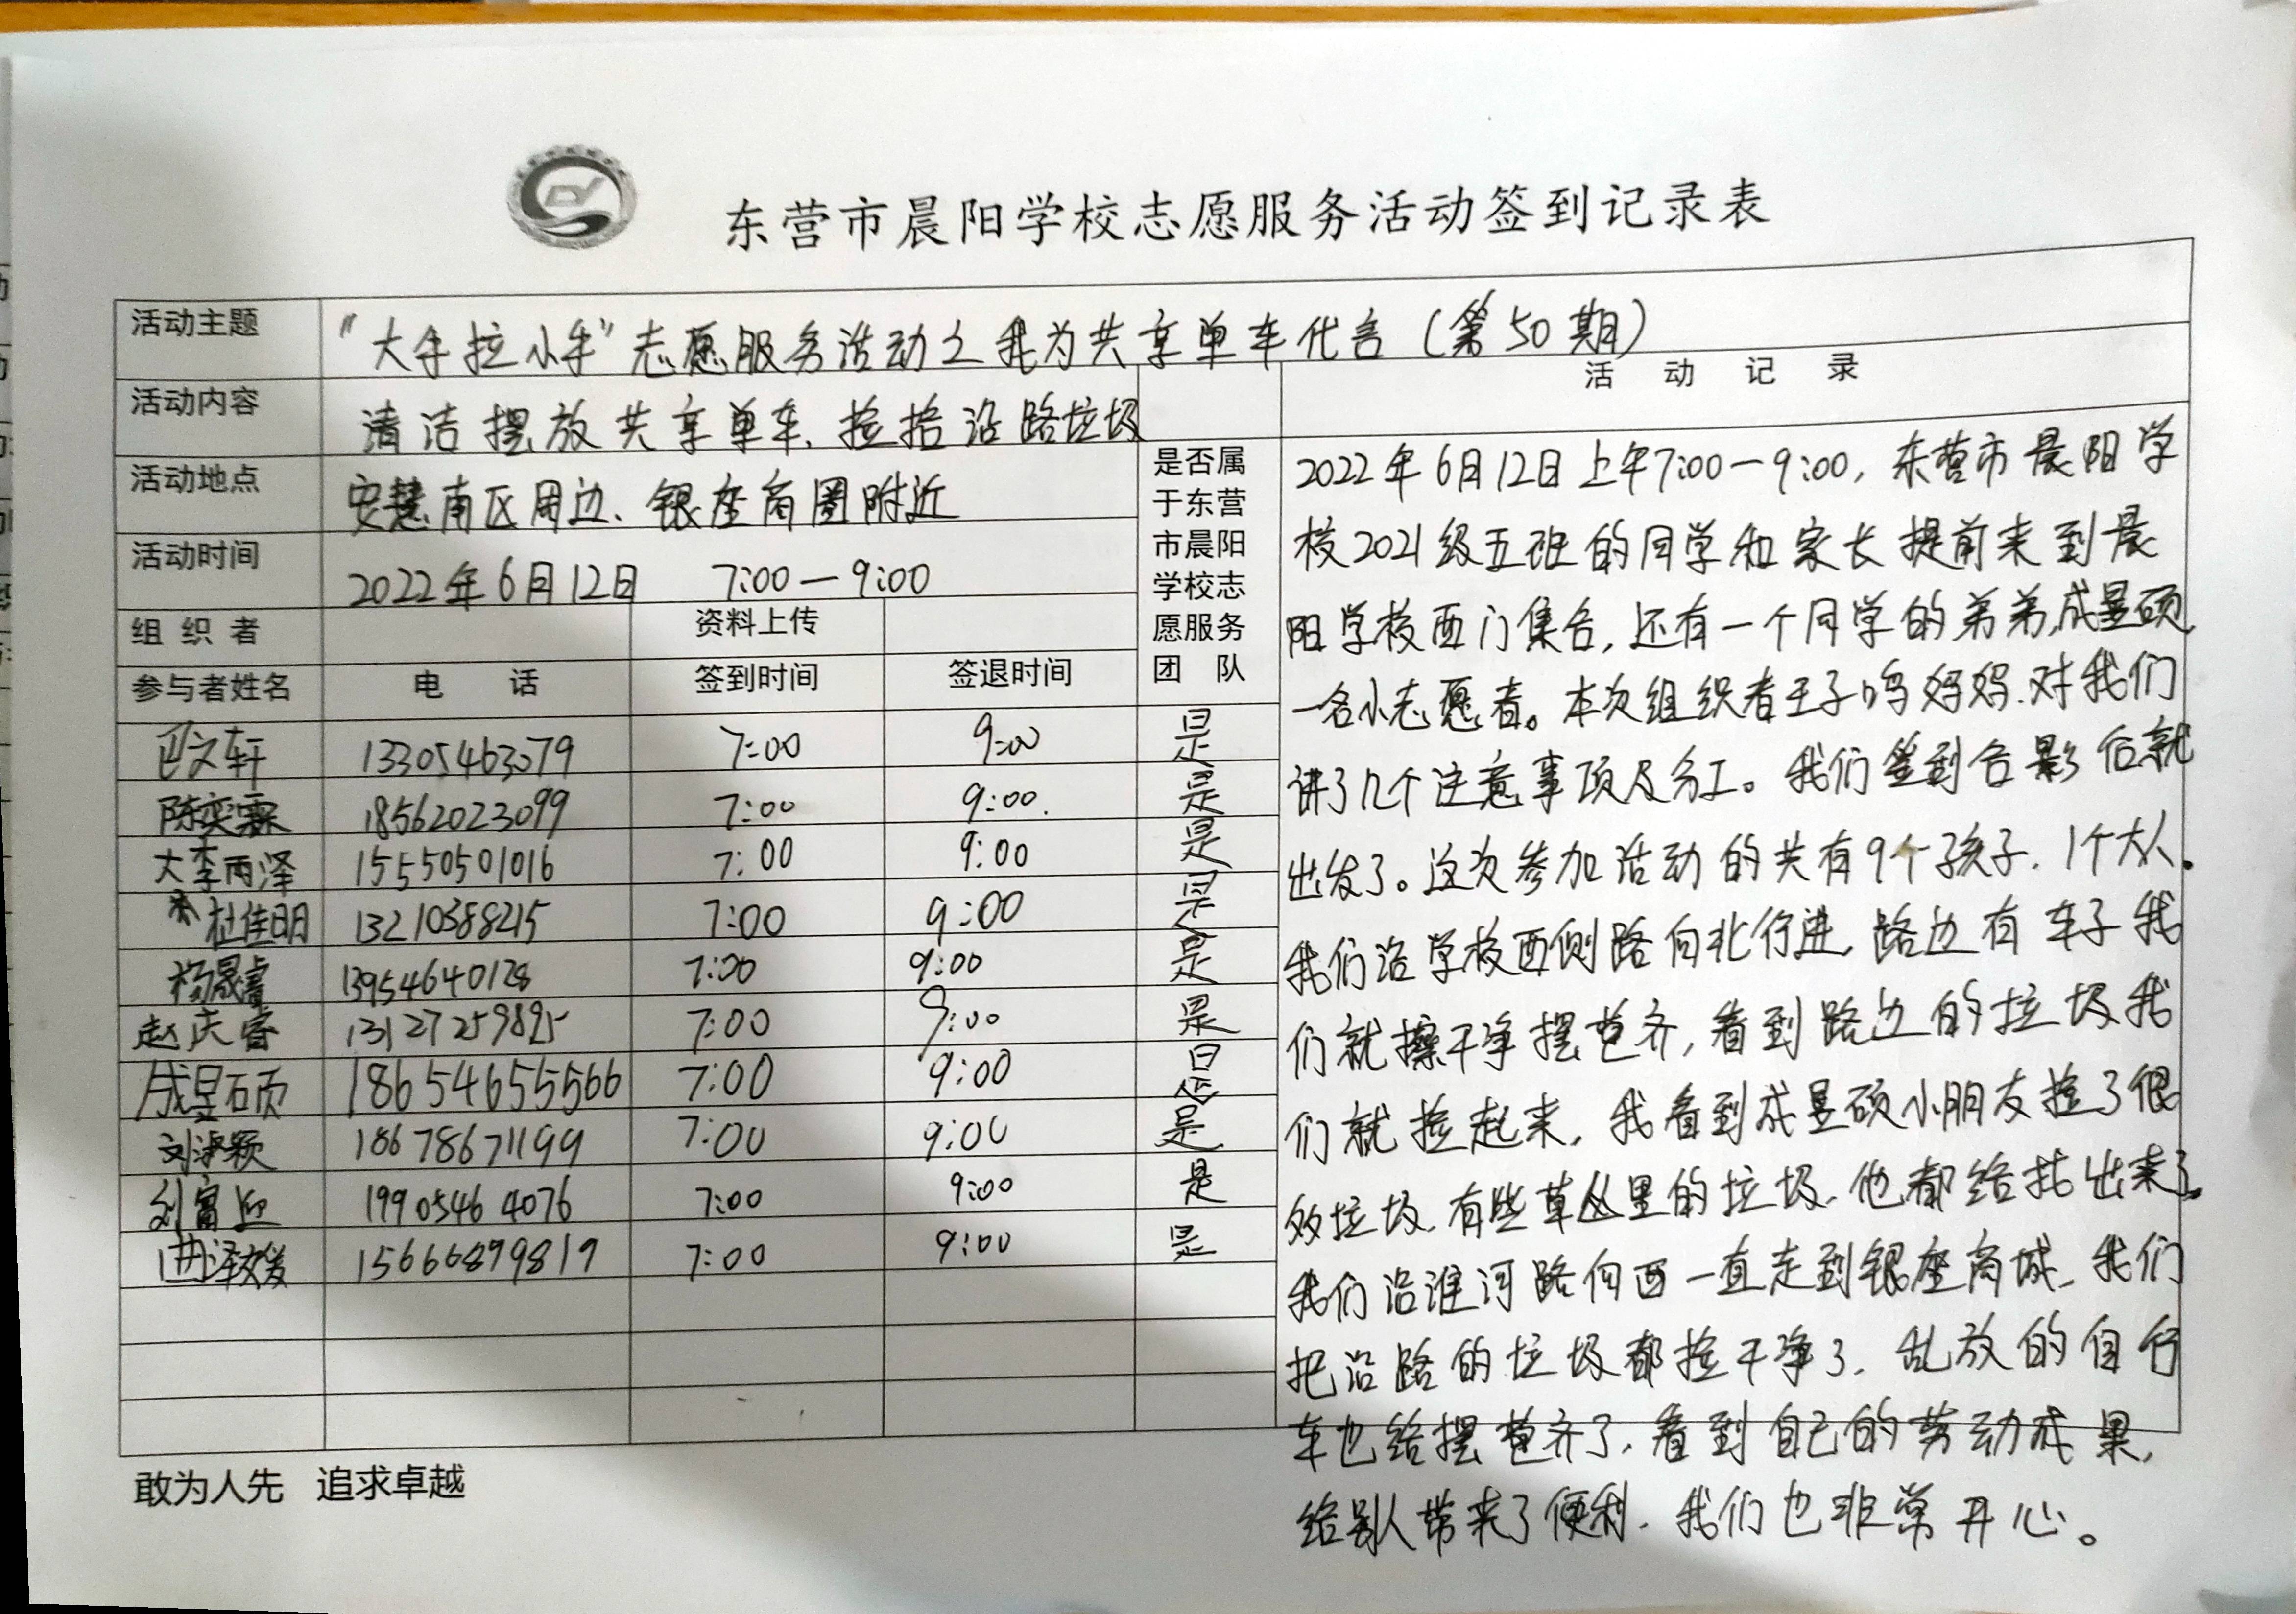 东营市晨阳学校志愿服务活动签到记录表
活动主题 “大手拉小手”志愿服务活动之我为共享单车代言（第50期）
活动内容 清洁摆放共享单车、捡拾沿路垃圾
活动地点 安慧南区周边、银座商圈附近
活动时间 2022年6月12日 7:00—9:00
组织者 资料上传
参与者姓名 电话 签到时间 签退时间
是否属
于东营
市晨阳
学校志
愿服务
团队
巴文轩 13305463079 7:00 9:00 是
陈奕霖 18562023099 7:00 9:00. 是
大李雨泽 15550501016 7:00 9:00 是
杜佳明 13210388215 7:00 9:00 是
杨晟睿 13954640128 7:00 9:00 是
赵庆睿 13127259895 7:00 9:00 是
成昱硕 18654655566 7:00 9:00 是
刘淑颖 18678671199 7:00 9:00 是
刘富迎 19905464076 7:00 9:00 是
泽媛 15666899819 7:00 9:00 是
活动记录
2022年6月12日上午7:00—9:00，东营市晨阳学
校2021级五班的同学和家长提前来到晨
阳学校西门集合，还有一个同学的弟弟，成昱硕
一名小志愿者。本次组织者王子鸣妈妈.对我们
讲了几个注意事项及分工。我们签到合影后就
出发了。这次参加活动的共有9个孩子.1个大人。
我们沿学校西侧路向北行进，路边有车子我
们就擦干净摆整齐，看到路边的垃圾我
们就捡起来，我看到成昱硕小朋友捡了很
多垃圾，有些草丛里的垃圾，他都给找出来了。
我们沿淮河路向西一直走到银座商城，我们
把沿路的垃圾都捡干净了，乱放的自行
车也给摆整齐了，看到自己的劳动成果，
给别人带来了便利，我们也非常开心。
敢为人先 追求卓越